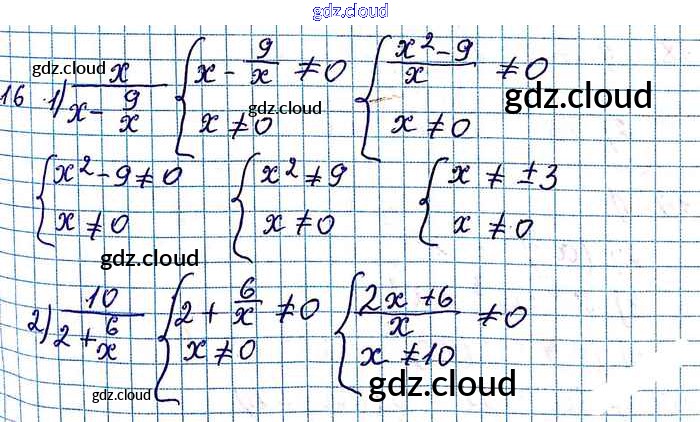 gdz.cloud
16 1) x/(x - 9/x) { x - 9/x ≠ 0 { (x² - 9)/x ≠ 0
x ≠ 0 x ≠ 0
gdz.cloud gdz.cloud gdz.cloud
{ x² - 9 ≠ 0 { x² ≠ 9 { x ≠ ± 3
x ≠ 0 x ≠ 0 x ≠ 0
gdz.cloud gdz.cloud
2) 10/(2 + 6/x) { 2 + 6/x ≠ 0 { (2x + 6)/x ≠ 0
x ≠ 0 x ≠ 10
gdz.cloud gdz.cloud